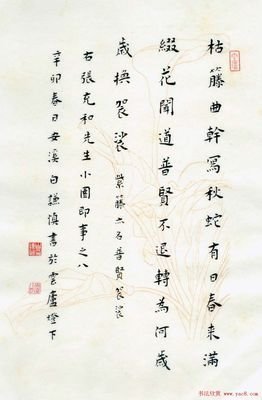 枯籐曲幹寫秋蛇有日春来滿
綴花聞道普賢不退轉為何歲
歲換袈裟 紫籐亦名普賢袈裟
右張充和先生小園即事之八
辛卯春日安溪白謙慎書於雲廬燈下